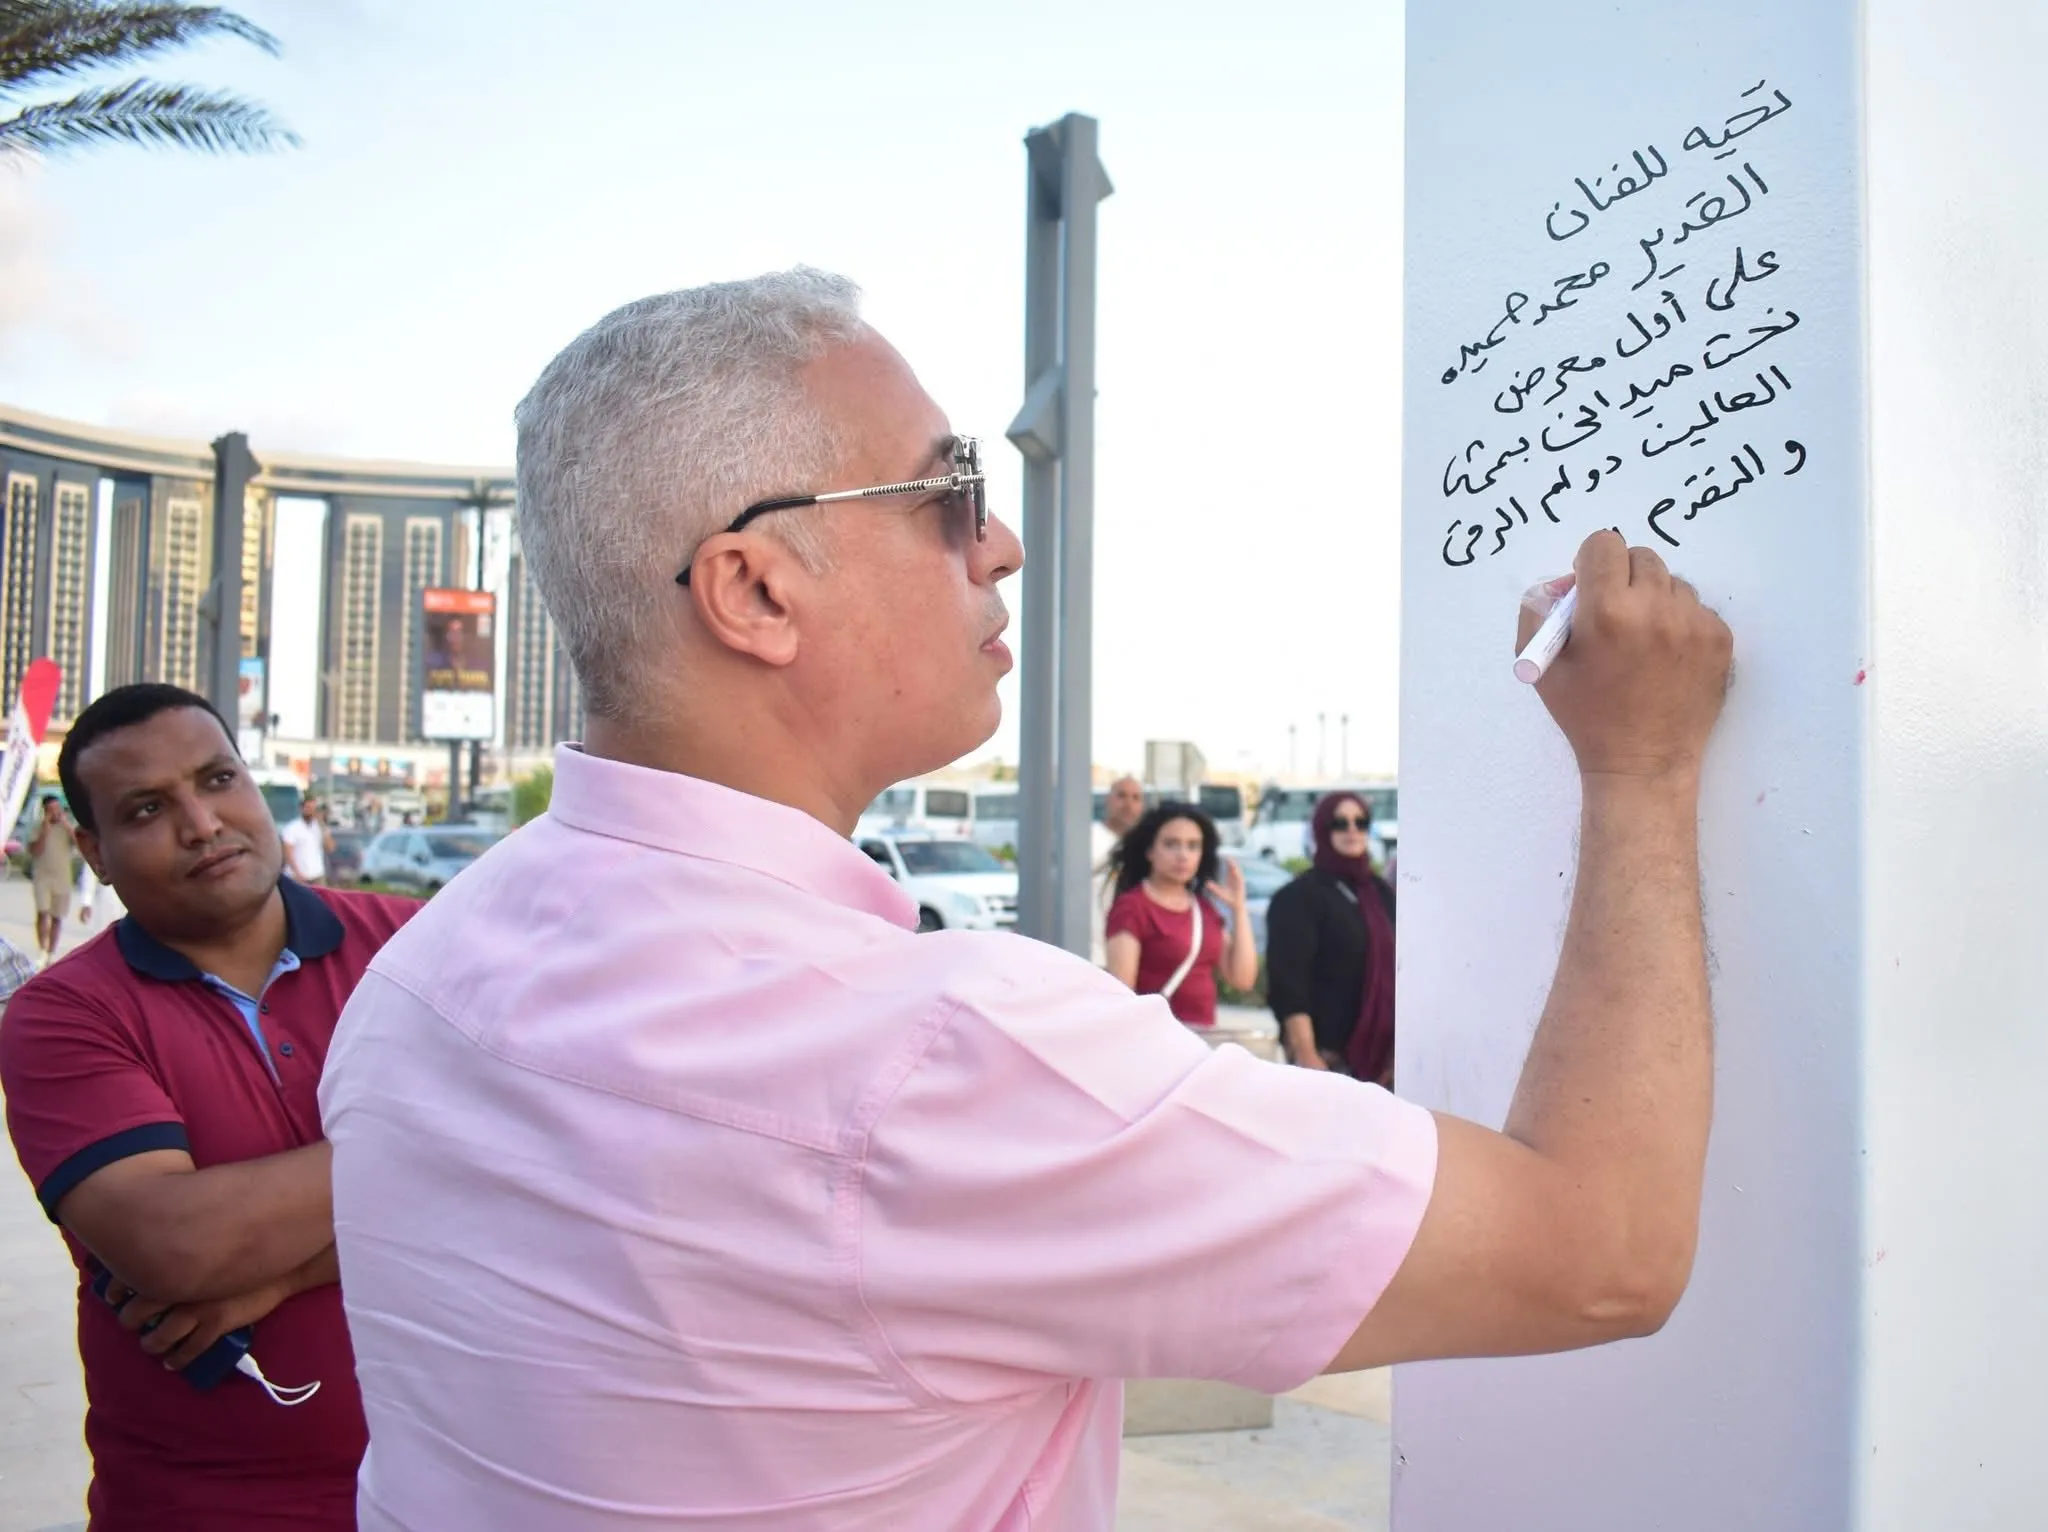 تحيه للفنان
القدير محمد حميده
على أول معرض
نحت ميدانى بممشى
العالمين دوام الرقى
و التقدم